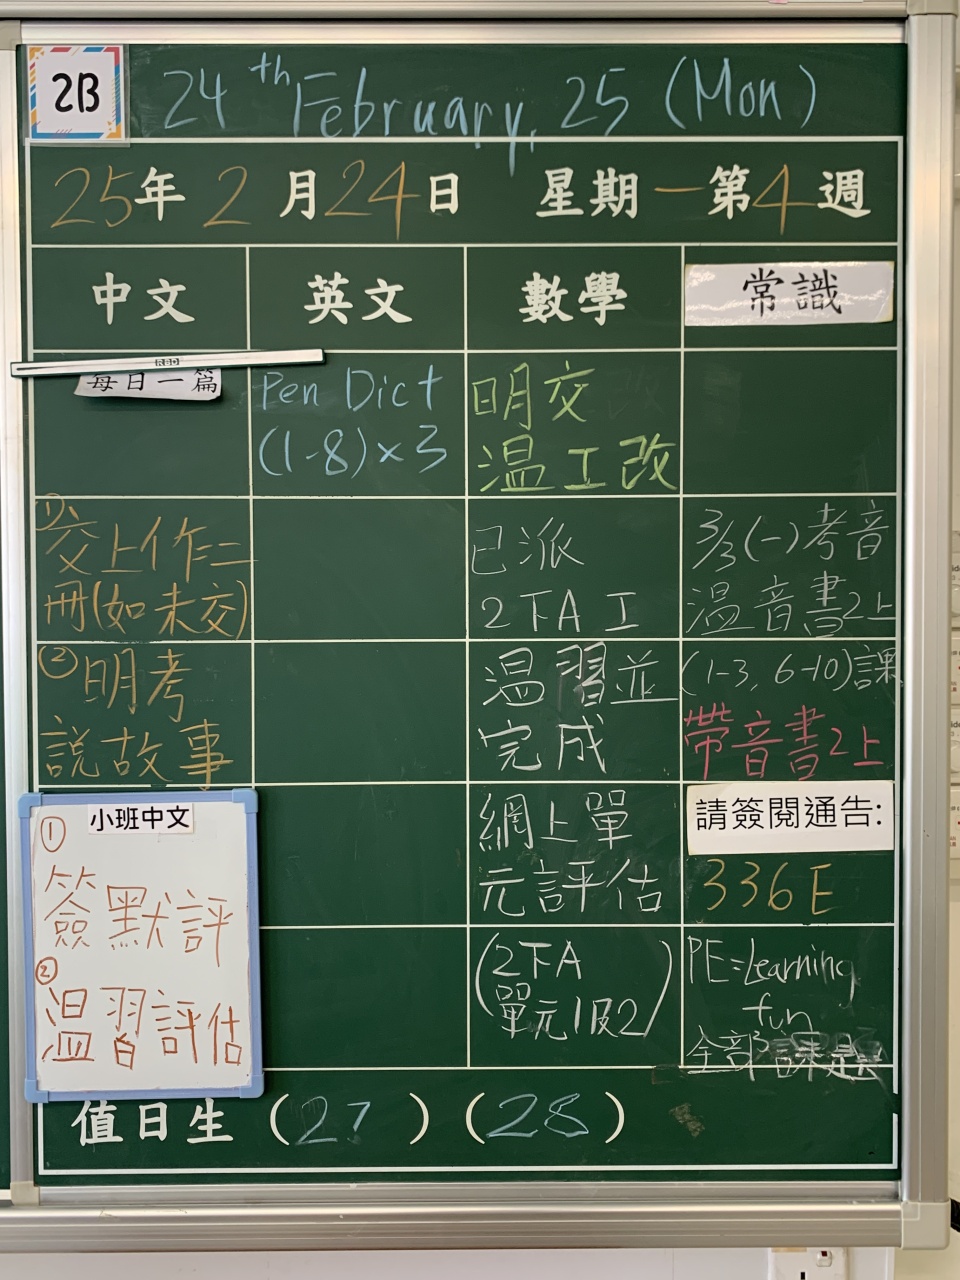 2B
24th February, 25 (Mon)
25年 2月24日 星期一第4週
中文
英文
數學
常識
RBD
每日一篇
①
交上作二
冊(如未交)
② 明考
說故事
小班中文
①
簽默評
②
溫習評估
Pen Dict
(1-8)×3
明交
溫工改
已派
2下A工
溫習並
完成
網上單
元評估
(2下A
單元1及2)
3/3(一)考音
溫音書2上
(1-3, 6-10)課
帶音書2上
請簽閱通告:
336E
PE=Learning
fun
全部課題
值日生 (27) (28)